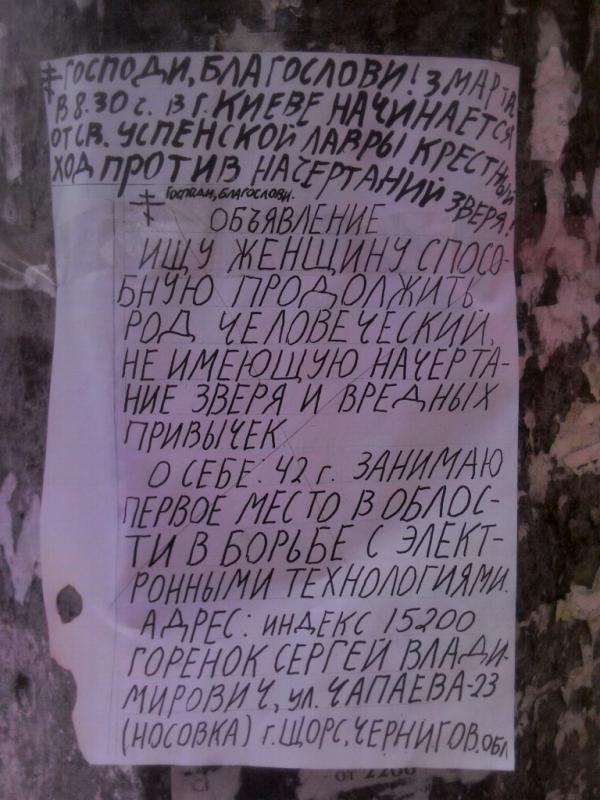 ГОСПОДИ, БЛАГОСЛОВИ! 3 МАРТА
В 8.30 с. В Г. КИЕВЕ НАЧИНАЕТСЯ
ОТ СВ. УСПЕНСКОЙ ЛАВРЫ КРЕСТНЫЙ
ХОД ПРОТИВ НАЧЕРТАНИЙ ЗВЕРЯ!
Господи, благослови.
ОБЪЯВЛЕНИЕ
ИЩУ ЖЕНЩИНУ СПОСО-
БНУЮ ПРОДОЛЖИТЬ
РОД ЧЕЛОВЕЧЕСКИЙ,
НЕ ИМЕЮЩУЮ НАЧЕРТА-
НИЕ ЗВЕРЯ И ВРЕДНЫХ
ПРИВЫЧЕК
О СЕБЕ: 42 г. ЗАНИМАЮ
ПЕРВОЕ МЕСТО В ОБЛОС-
ТИ В БОРЬБЕ С ЭЛЕКТ-
РОННЫМИ ТЕХНОЛОГИЯМИ.
АДРЕС: ИНДЕКС 15200
ГОРЕНОК СЕРГЕЙ ВЛАДИ-
МИРОВИЧ, ул. ЧАПАЕВА-23
(НОСОВКА) г. ЩОРС, ЧЕРНИГОВ. ОБЛ
от 2200